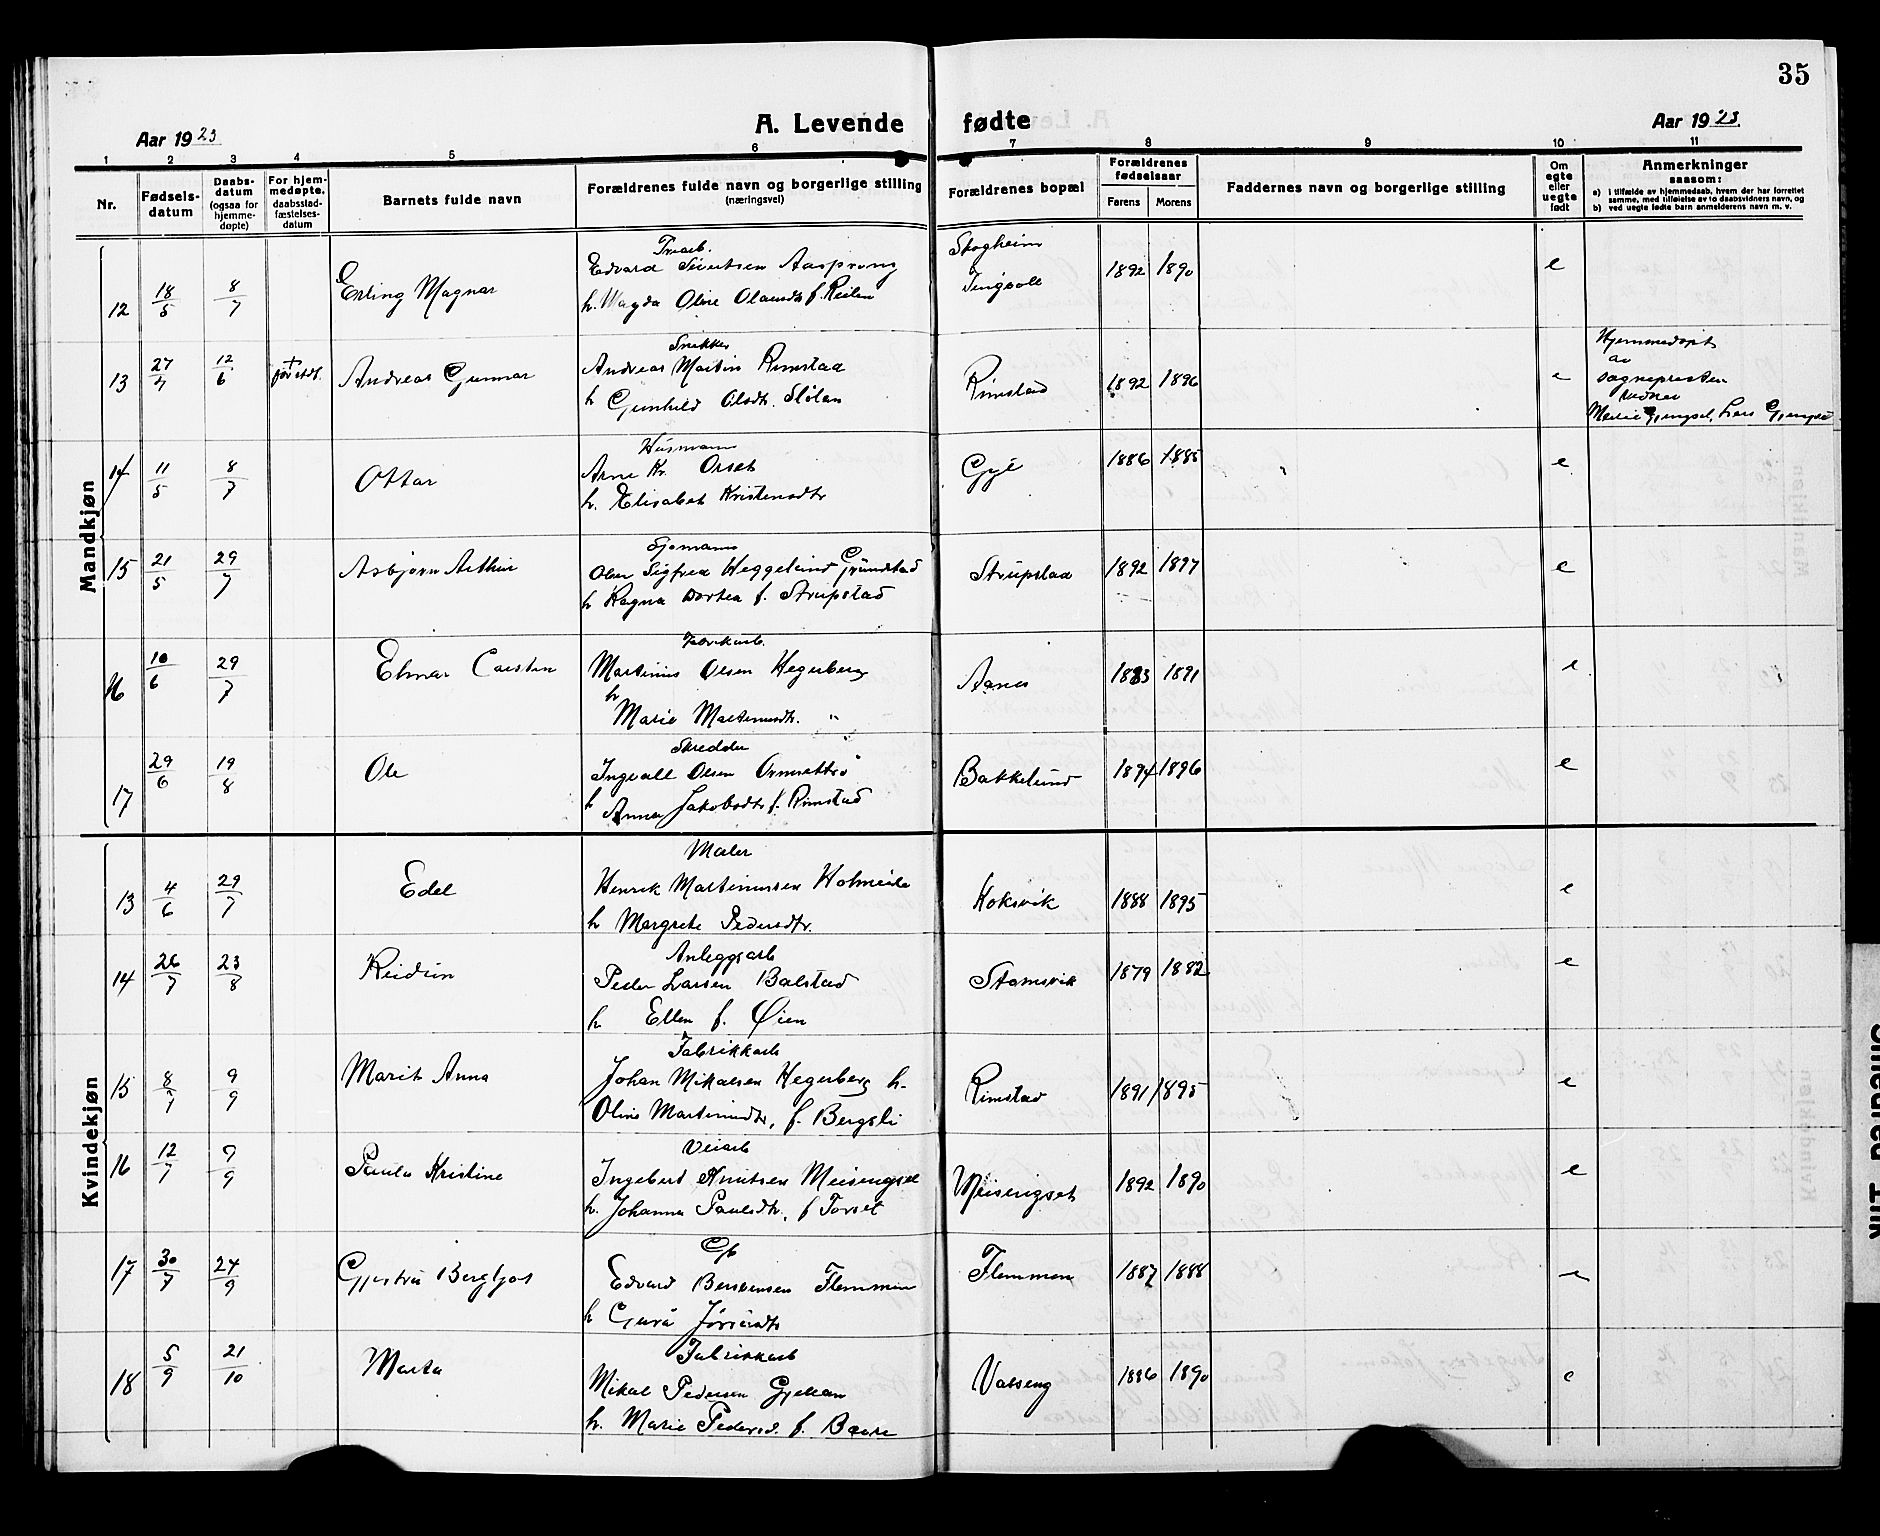 35
Aar 1923
A. Levende fødte
Aar 1923.
1 2 3 4 5 6 7 8 9 10 11
Nr.
Fødsels-
datum
Daabs-
datum
(ogsaa for
hjemme-
døpte)
For hjem-
medøpte,
daabsstad-
fæstelses-
datum
Barnets fulde navn
Forældrenes fulde navn og borgerlige stilling
(næringsvei)
Forældrenes bopæl
Forældrenes
fødselsaar
Farens Morens
Faddernes navn og borgerlige stilling
Om
egte
eller
uegte
født
Anmerkninger
saasom:
a) i tilfælde av hjemmedaab, hvem der har forrettet
samme, med tilføielse av to daabsvidners navn, og
b) ved uegte fødte barn anmelderens navn m. v.
Mandkjøn
12 18/5 8/7 Erling Magnar
Edvard Sivertsen Aasprong
h. Magda Oline Olausdtr f. Reiten
Skogheim
Tingvoll
1892 1890 e
13 27/4 12/6 + før stdf. Andreas Gunnar
Snekker
Andreas Martin Rimstad
h Gunhild Olsdtr.
Rimstad 1892 1896 e
Hjemmedøpt
av
sognepresten
vidner
Marie Gjengset, Lars Gjengset
14 11/5 8/7 Ottar
Husmann
Arne Kr. Orset
h. Elisabet Kristensdtr
1886 1885 e
15 21/5 29/7 Asbjørn Arthur
Sjømann
Olav Sigfred Heggelund Grundstad
h Ragna Dortea f. Strupstad
Strupstad 1892 1897 e
16 10/6 29/7 Elmar Carsten
Fabrikarb.
Martinus Olsen Hegerberg
h
Marie Martinusdtr. "
Aanes 1883 1891 e
17 29/6 19/8 Ole
Skredder
Ingvald Olsen
h Anna Jakobsdtr f. Rimstad
Bakkelund 1894 1896 e
Kvindekjøn
13 4/6 29/7 Edel
Maler
Henrik Martinussen Holmeide
h Margrete Pedersdtr.
Koksvik 1888 1895 e
14 26/7 23/8 Reidun
Anleggsarb
Peder Larsen Balstad
h Ellen f. Øien
Stamsvik 1879 1882 e
15 8/7 9/9 Marit Anna
Fabrikkarb
Johan Mikalsen Hegerberg h.
Oline Martinusdtr, f. Bergsli
Rimstad 1891 1895 e
16 12/7 9/9 Paula Kristine
Veiarb
Ingebert Knutsen Meisingset
h. Johanna Paulsdtr. f Torset
Meisingset 1892 1890 e
17 30/7 24/9 Gjertru Bergljot
Gb
Edvard Berntsen Flemmen
h Guru
Flemmen 1887 1888 e
18 5/9 21/10 Marta
Fabrikkarb
Mikal Pedersen Gjeilan
h. Marie Pedersd. f. Bøvre
Vatseng 1886 1890 e